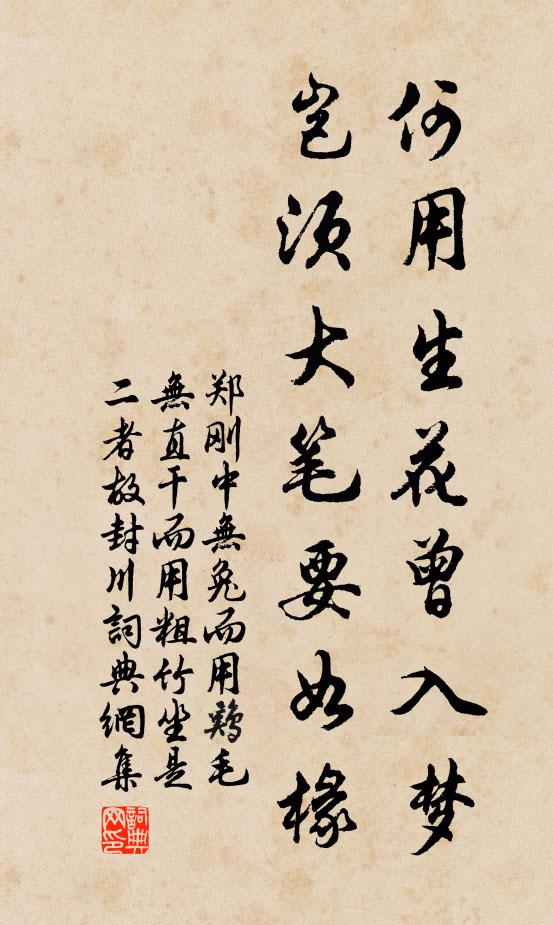 何用生花曾入梦
岂须大笔要如椽
郑刚中無兔而用鶏毛
無直干而用粗竹坐是
二者故封川詞典網集
詞典网印